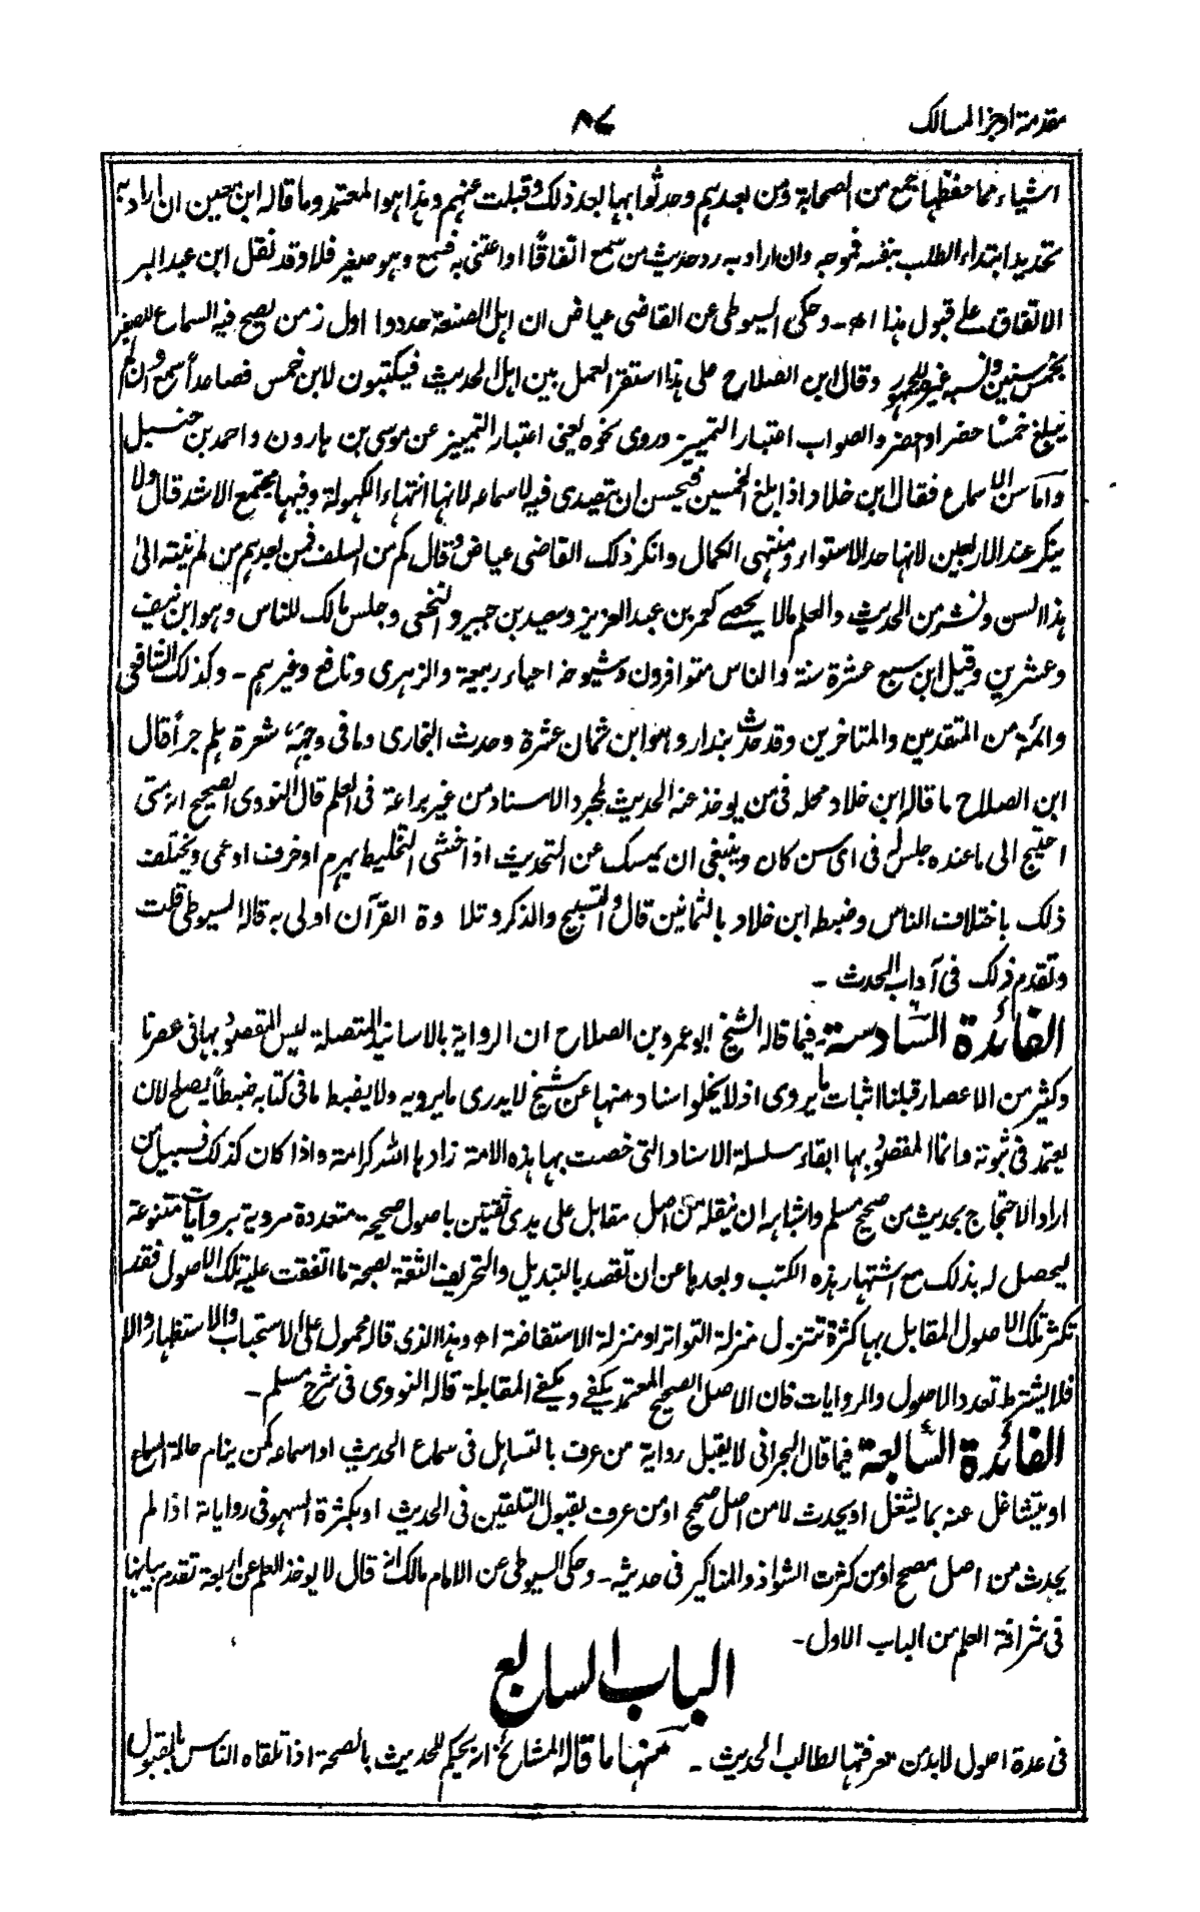 مقدمة اوجز المسالك
٨٧
اشياء مما حفظها جمع من الصحابة ومن بعدهم وحدثوا بها بعد ذلك وقبلت عنهم وهذا هو المعتمد وما قاله ابن معين ان اراد به
تحديد ابتداء الطلب بنفسه فموجه وان اراد به رد حديث من سمع اتفاقًا او اعتنى به فسمع وهو صغير فلا وقد نقل ابن عبد البر
الاتفاق على قبول هذا اه ـ وحكى السيوطى عن القاضى عياض ان اهل الصنعة حددوا اول زمن يصح فيه السماع للصغير
بخمس سنين ونسبه غيره للجمهور وقال ابن الصلاح على هذا استقر العمل بين اهل الحديث فيكتبون لابن خمس فصاعداً سمع وان لم
يبلغ خمسًا حضر او احضر والصواب اعتبار التمييز وروى نحوه يعنى اعتبار التمييز عن موسى بن هارون واحمد بن حنبل
واما سن الاسماع فقال ابن خلاد اذا بلغ الخمسين فيحسن ان يتصدى فيه لاسماعه لانها انتهاء الكهولة وفيها مجتمع الاشد قال ولا
ينكر عند الاربعين لانها حد الاستواء ومنتهى الكمال وانكر ذلك القاضى عياض وقال كم من السلف فمن بعدهم من لم ينته الى
هذا السن ونشر من الحديث والعلم ما لا يحصى كعمر بن عبد العزيز وسعيد بن جبير والنخعى وجلس مالك للناس وهو ابن نيف
وعشرين وقيل ابن سبع عشرة سنة والناس متوافرون وشيوخه احياء ربيعة والزهرى ونافع وغيرهم ـ وكذلك الشافعى
وائمة من المتقدمين والمتاخرين وقد حدث بندار وهو ابن ثمان عشرة وحدث البخارى وما فى وجهه شعرة هلم جراً قال
ابن الصلاح ما قاله ابن خلاد محله فى من يوخذ عنه الحديث لمجرد الاسناد من غير براعة فى العلم قال النووى الصحيح انه متى
احتيج الى ما عنده جلس له فى اى سن كان وينبغى ان يمسك عن التحديث اذا خشى التخليط بهرم او خرف او عمى ويختلف
ذلك باختلاف الناس وضبطه ابن خلاد بالثمانين قال والتسبيح والذكر وتلاوة القرآن اولى به قاله السيوطى قلت
وتقدم ذلك فى آداب المحدث ـ
الفائدة السادسة ـ فيما قاله الشيخ ابو عمرو بن الصلاح ان الرواية بالاسانيد المتصلة ليس المقصود بها فى عصرنا
وكثير من الاعصار قبلنا اثبات ما يروى اذ لا يخلو اسناد منها عن شيخ لا يدرى ما يرويه ولا يضبط ما فى كتابه ضبطاً يصلح لان
يعتمد فى ثبوته وانما المقصود بها ابقاء سلسلة الاسناد التى خصت بها هذه الامة زادها الله كرامة واذا كان كذلك فسبيل من
اراد الاحتجاج بحديث من صحيح مسلم واشباهه ان ينقله من اصل مقابل على يدى ثقتين باصول صحيحة متعددة مروية بروايات متنوعة
ليحصل له بذلك مع اشتهار هذه الكتب وبعدها عن ان تقصد بالتبديل والتحريف الثقة بصحة ما اتفقت عليه تلك الاصول فقد
تكثر تلك الاصول المقابل بها كثرة تتنزل منزلة التواتر او منزلة الاستفاضة اه وهذا الذى قاله محمول على الاستحباب والاستظهار والا
فلا يشترط تعدد الاصول والروايات فان الاصل الصحيح المعتمد يكفى ويكفى المقابلة قاله النووى فى شرح مسلم ـ
الفائدة السابعة فيما قال الجزائرى لا يقبل رواية من عرف بالتساهل فى سماع الحديث او اسماعه كمن ينام حالة السماع
او يتشاغل عنه بما يشغل او يحدث لا من اصل صحيح او من عرف بقبول التلقين فى الحديث او بكثرة السهو فى رواياته اذا لم
يحدث من اصل مصحح او من كثرت الشواذ والمناكير فى حديثه ـ وحكى السيوطى عن الامام مالك انه قال لا يوخذ العلم عن اربعة تقدم بيانها
فى شرافة العلم من الباب الاول ـ
الباب السابع
فى عدة اصول لابد من معرفتها لطالب الحديث ـ منها ما قاله المشايخ انه يحكم للحديث بالصحة اذا تلقاه الناس بالقبول